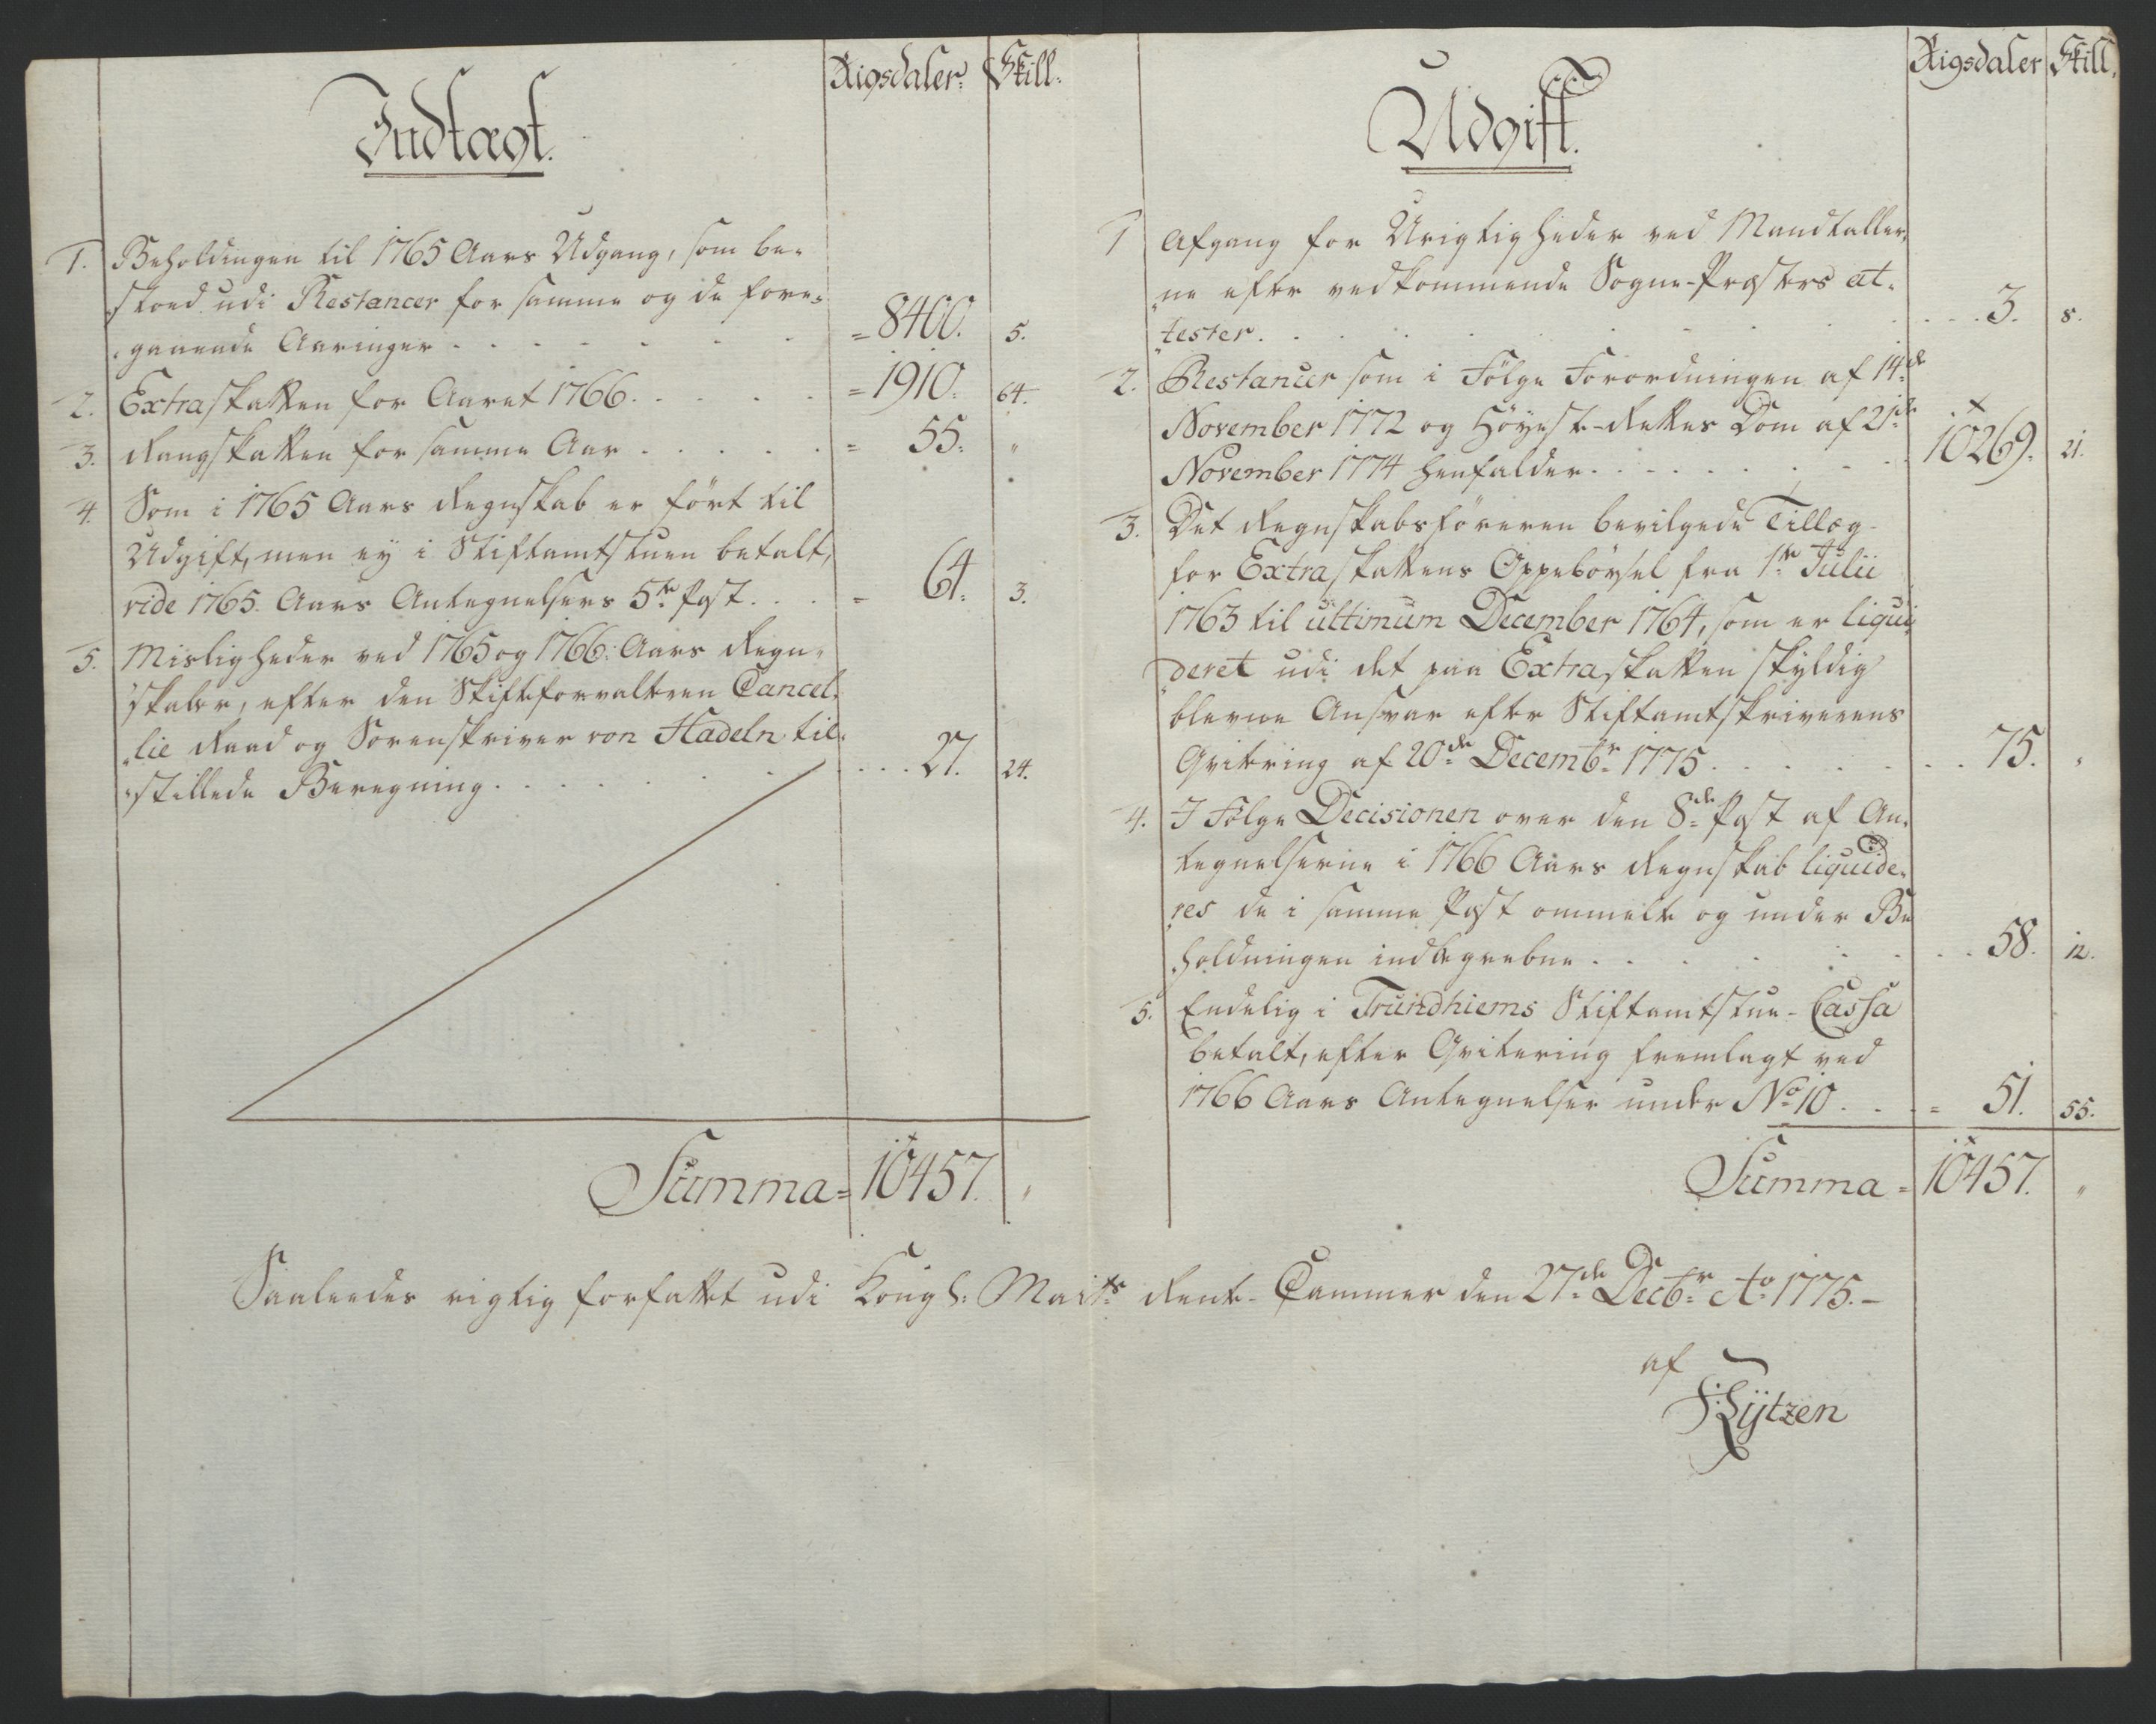 Indtægt.
Rigsdaler: Skill:
1. Beholdingen til 1765 Aars Udgang, som be-
stoed udi Restancer for samme og de fore-
gaaende Aaringer . . . . . . = 8400. 5.
2. Extraskatten for Aaret 1766. . . . . = 1910. 64.
3. Rangskatten for samme Aar . . . . . = 55. "
4. Som i 1765 Aars Regnskab er ført til
Udgift, men ey i Stiftamtstuen betalt,
vide 1765. Aars Antegnelsers 5te Post. . . = 64. 3.
5. Misligheder ved 1765 og 1766. Aars Regn-
skaber, efter den Stiftsforvalteren Cancel-
lie Raad og Sorenskriver von Hadeln til-
stillede Beregning. . . . . . . . . 27. 24.
Summa = 10457. "
Udgift.
Rigsdaler Skill.
1 Afgang for Urigtigheder ved Mandtaller-
ne efter vedkommende Sogne-Præsters At-
tester. . . . . . . . . . 3. 8.
2. Restancer som i Følge Forordningen af 14de
November 1772 og Høyeste-Rettes Dom af 21de
November 1774 henfalder. . . . . . . 10269. 21.
3. Det Regnskabsføreren bevilgede Tillæg
for Extraskattens Oppebørsel fra 1te Julii
1763 til ultimum December 1764, som er liqui-
deret udi det paa Extraskatten skyldig
blevne Ansvar efter Stiftamtskriverens
Qvitering af 20de Decembr 1775 . . . . . . . 75. "
4. I Følge Decisionen over den 8de Post af An-
tegnelserne i 1766 Aars Regnskab liquide-
res de i samme Post ommelte og under Be-
holdningen indbegrebne . . . . . . . 58. 12.
5. Endelig i Trundhiems Stiftamtstue-Cassa
betalt, efter Qvitering fremlagt ved
1766 Aars Antegnelser under No 10. . . . = 51. 55.
Summa = 10457. "
Saaledes rigtig forfattet udi Kongl: Maits Rente-Cammer den 27de Decbr Ao 1775.-
af
Lÿtzen